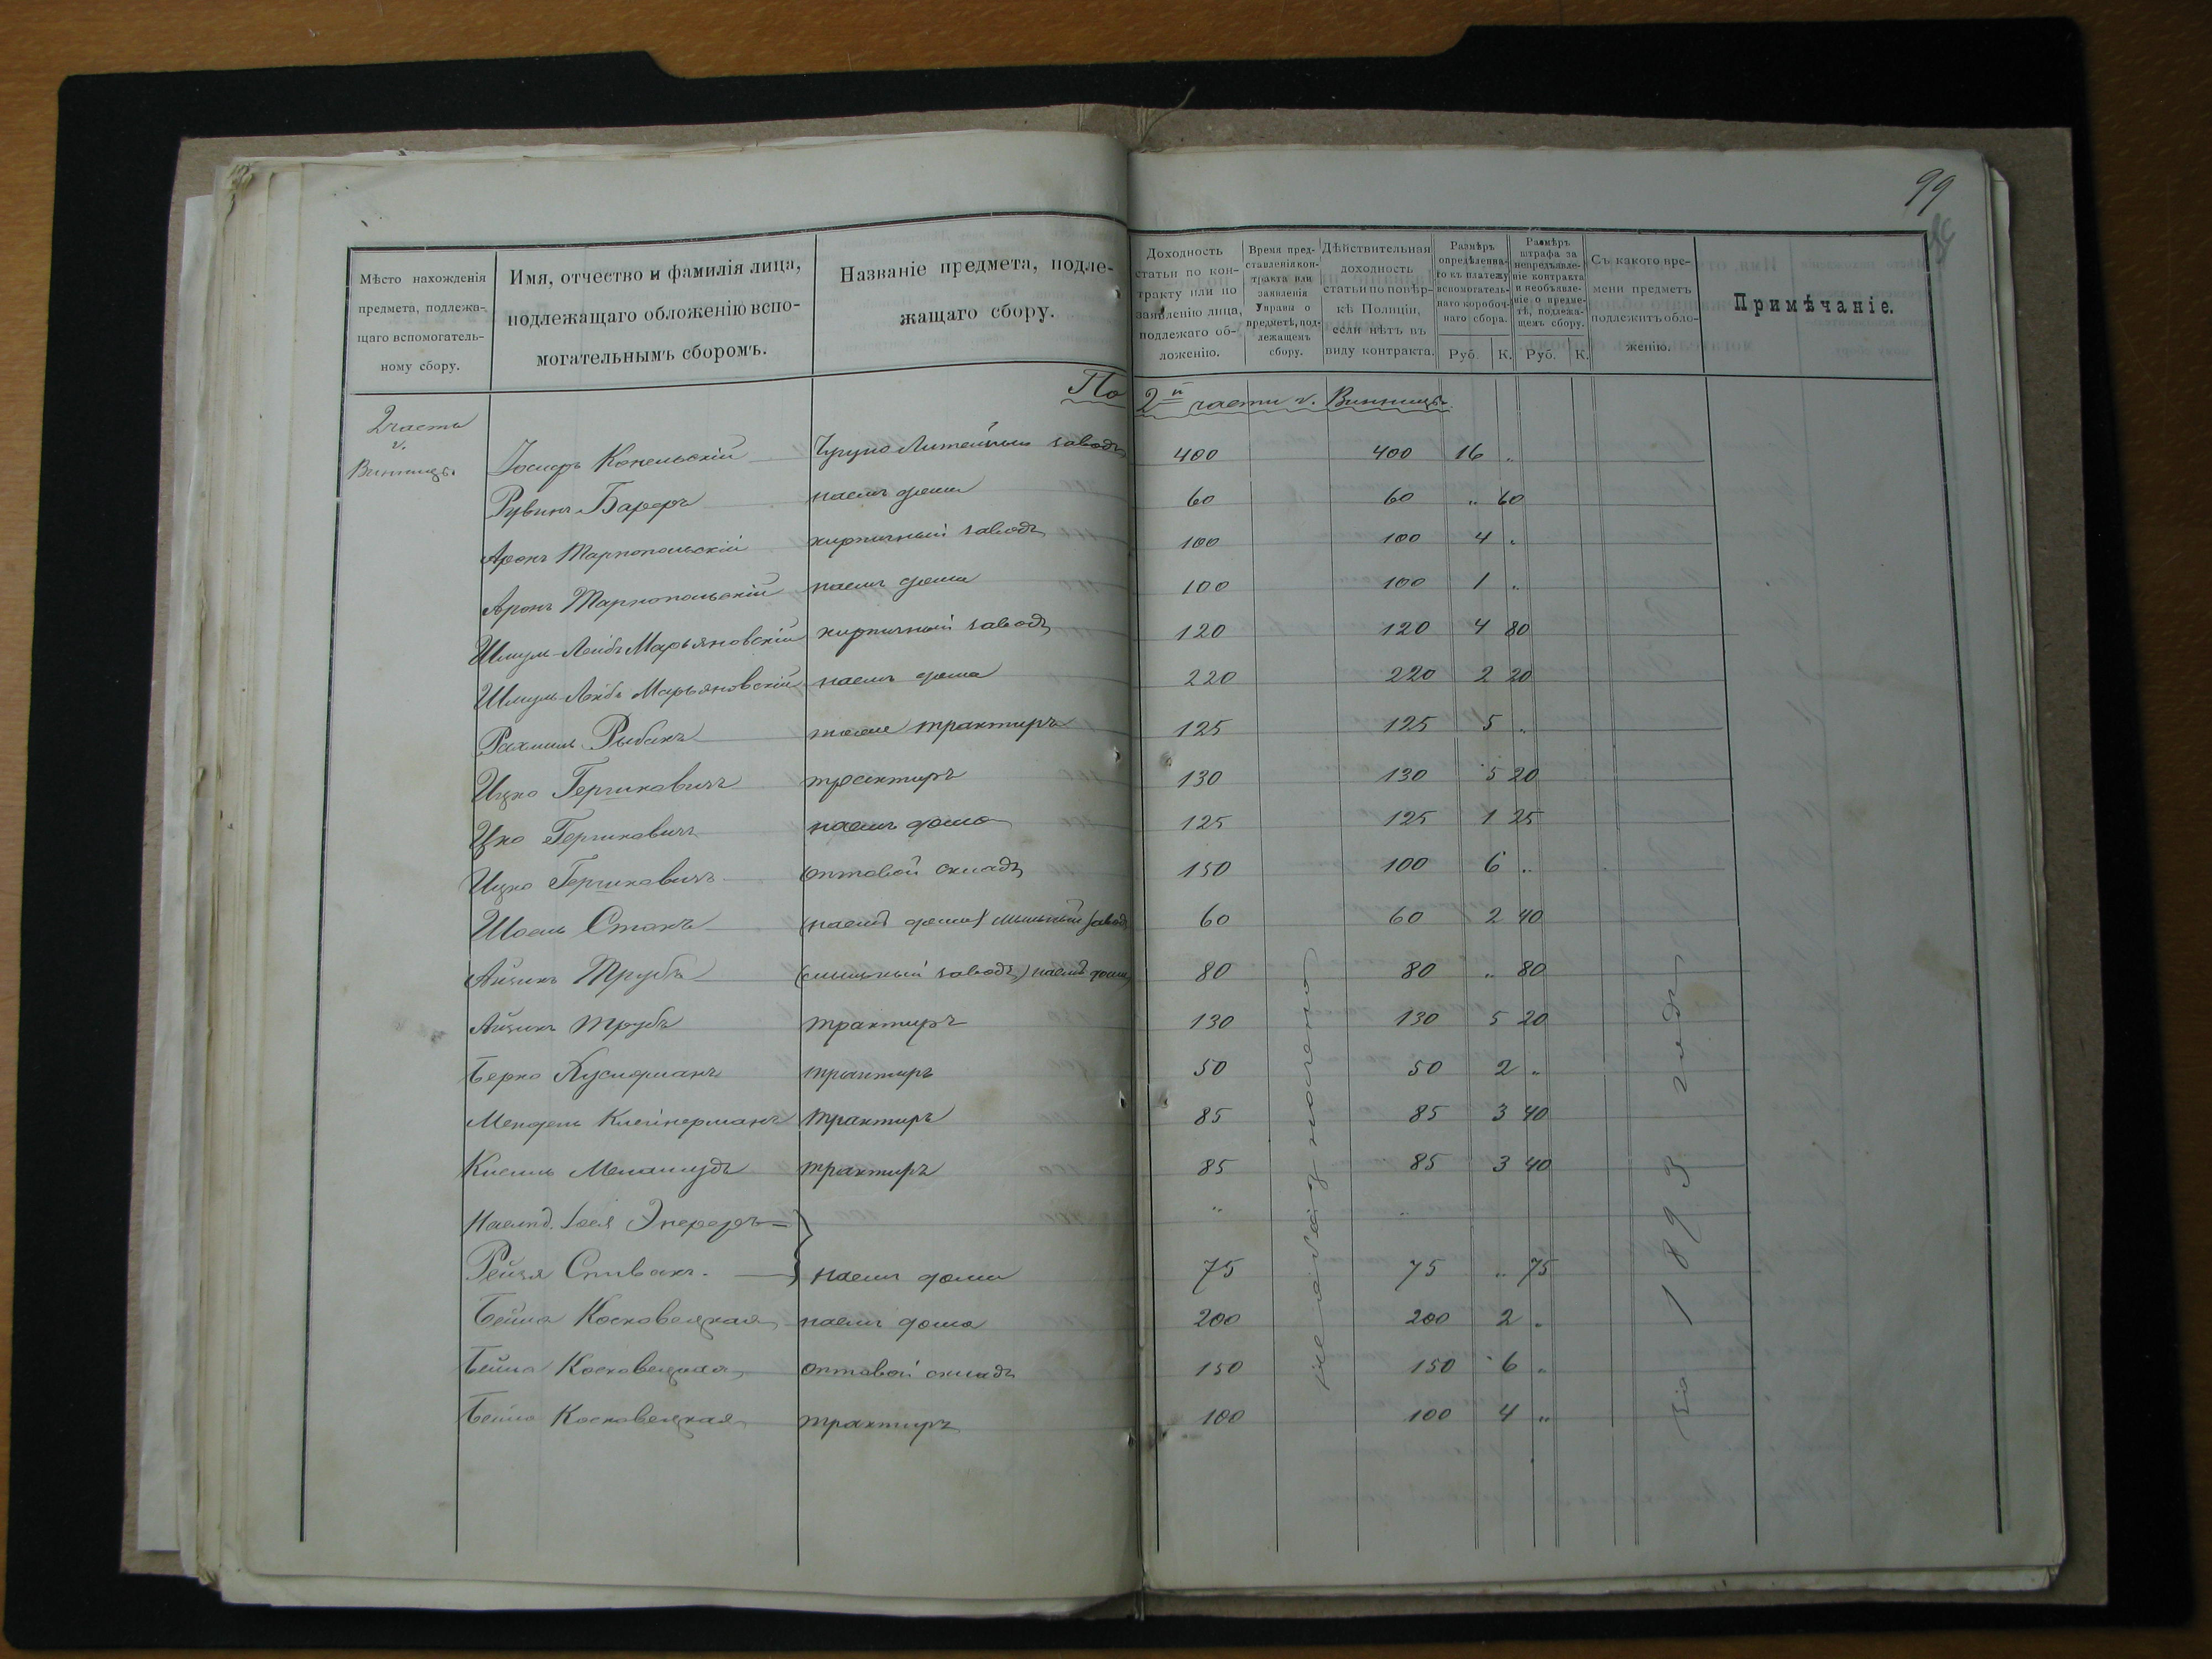 99
Мѣсто нахожденія предмета, подлежащаго вспомогательному сбору.
Имя, отчество и фамилія лица, подлежащаго обложенію вспомогательнымъ сборомъ.
Названіе предмета, подлежащаго сбору.
Доходность статьи по контракту или по заявленію лица, подлежаго обложенію.
Время представленія контракта или заявленія Управы о предметѣ, подлежащемъ сбору.
Дѣйствительная доходность статьи по повѣркѣ Полиціи, если нѣтъ въ виду контракта.
Размѣръ опредѣленнаго къ платежу вспомогательнаго коробочнаго сбора. Руб. К.
Размѣръ штрафа за непредъявленіе контракта и необъявленіе о предметѣ, подлежащемъ сбору. Руб. К.
Съ какого времени предметъ подлежитъ обложенію.
Примѣчаніе.
По 2й части г. Винницы.
2 часть
г.
Винницы.
Іосифъ Конельскій Чугуно Литейный заводъ 400 400 16 "
Рувинъ Бареръ наемъ дома 60 60 " 60
Аронъ Тарнопольскій кирпичный заводъ 100 100 4 "
Аронъ Тарнопольскій наемъ дома 100 100 1 "
Шмуль-Лейбъ Марьяновскій кирпичный заводъ 120 120 4 80
Шмуль-Лейбъ Марьяновскій наемъ дома 220 220 2 20
Рахмиль Рыбакъ трактиръ 125 125 5 "
Ицко Гершковичъ трактиръ 130 130 5 20
Ицко Гершковичъ наемъ дома 125 125 1 25
Ицко Гершковичъ оптовой складъ 150 100 6 "
Шоель (наемъ дома) мыльный заводъ 60 60 2 40
Айзикъ Трубъ (мыльный заводъ) наемъ дома 80 80 " 80
Айзикъ Трубъ трактиръ 130 130 5 20
Берко трактиръ 50 50 2 "
Мендель Клейнерманъ трактиръ 85 85 3 40
трактиръ 85 85 3 40
" "
Рейзя Спивакъ. наемъ дома 75 75 " 75
Бейла Косковецкая наемъ дома 200 200 2 "
Бейла Косковецкая оптовой складъ 150 150 6 "
Бейла Косковецкая трактиръ 100 100 4 "
За 1893 годъ